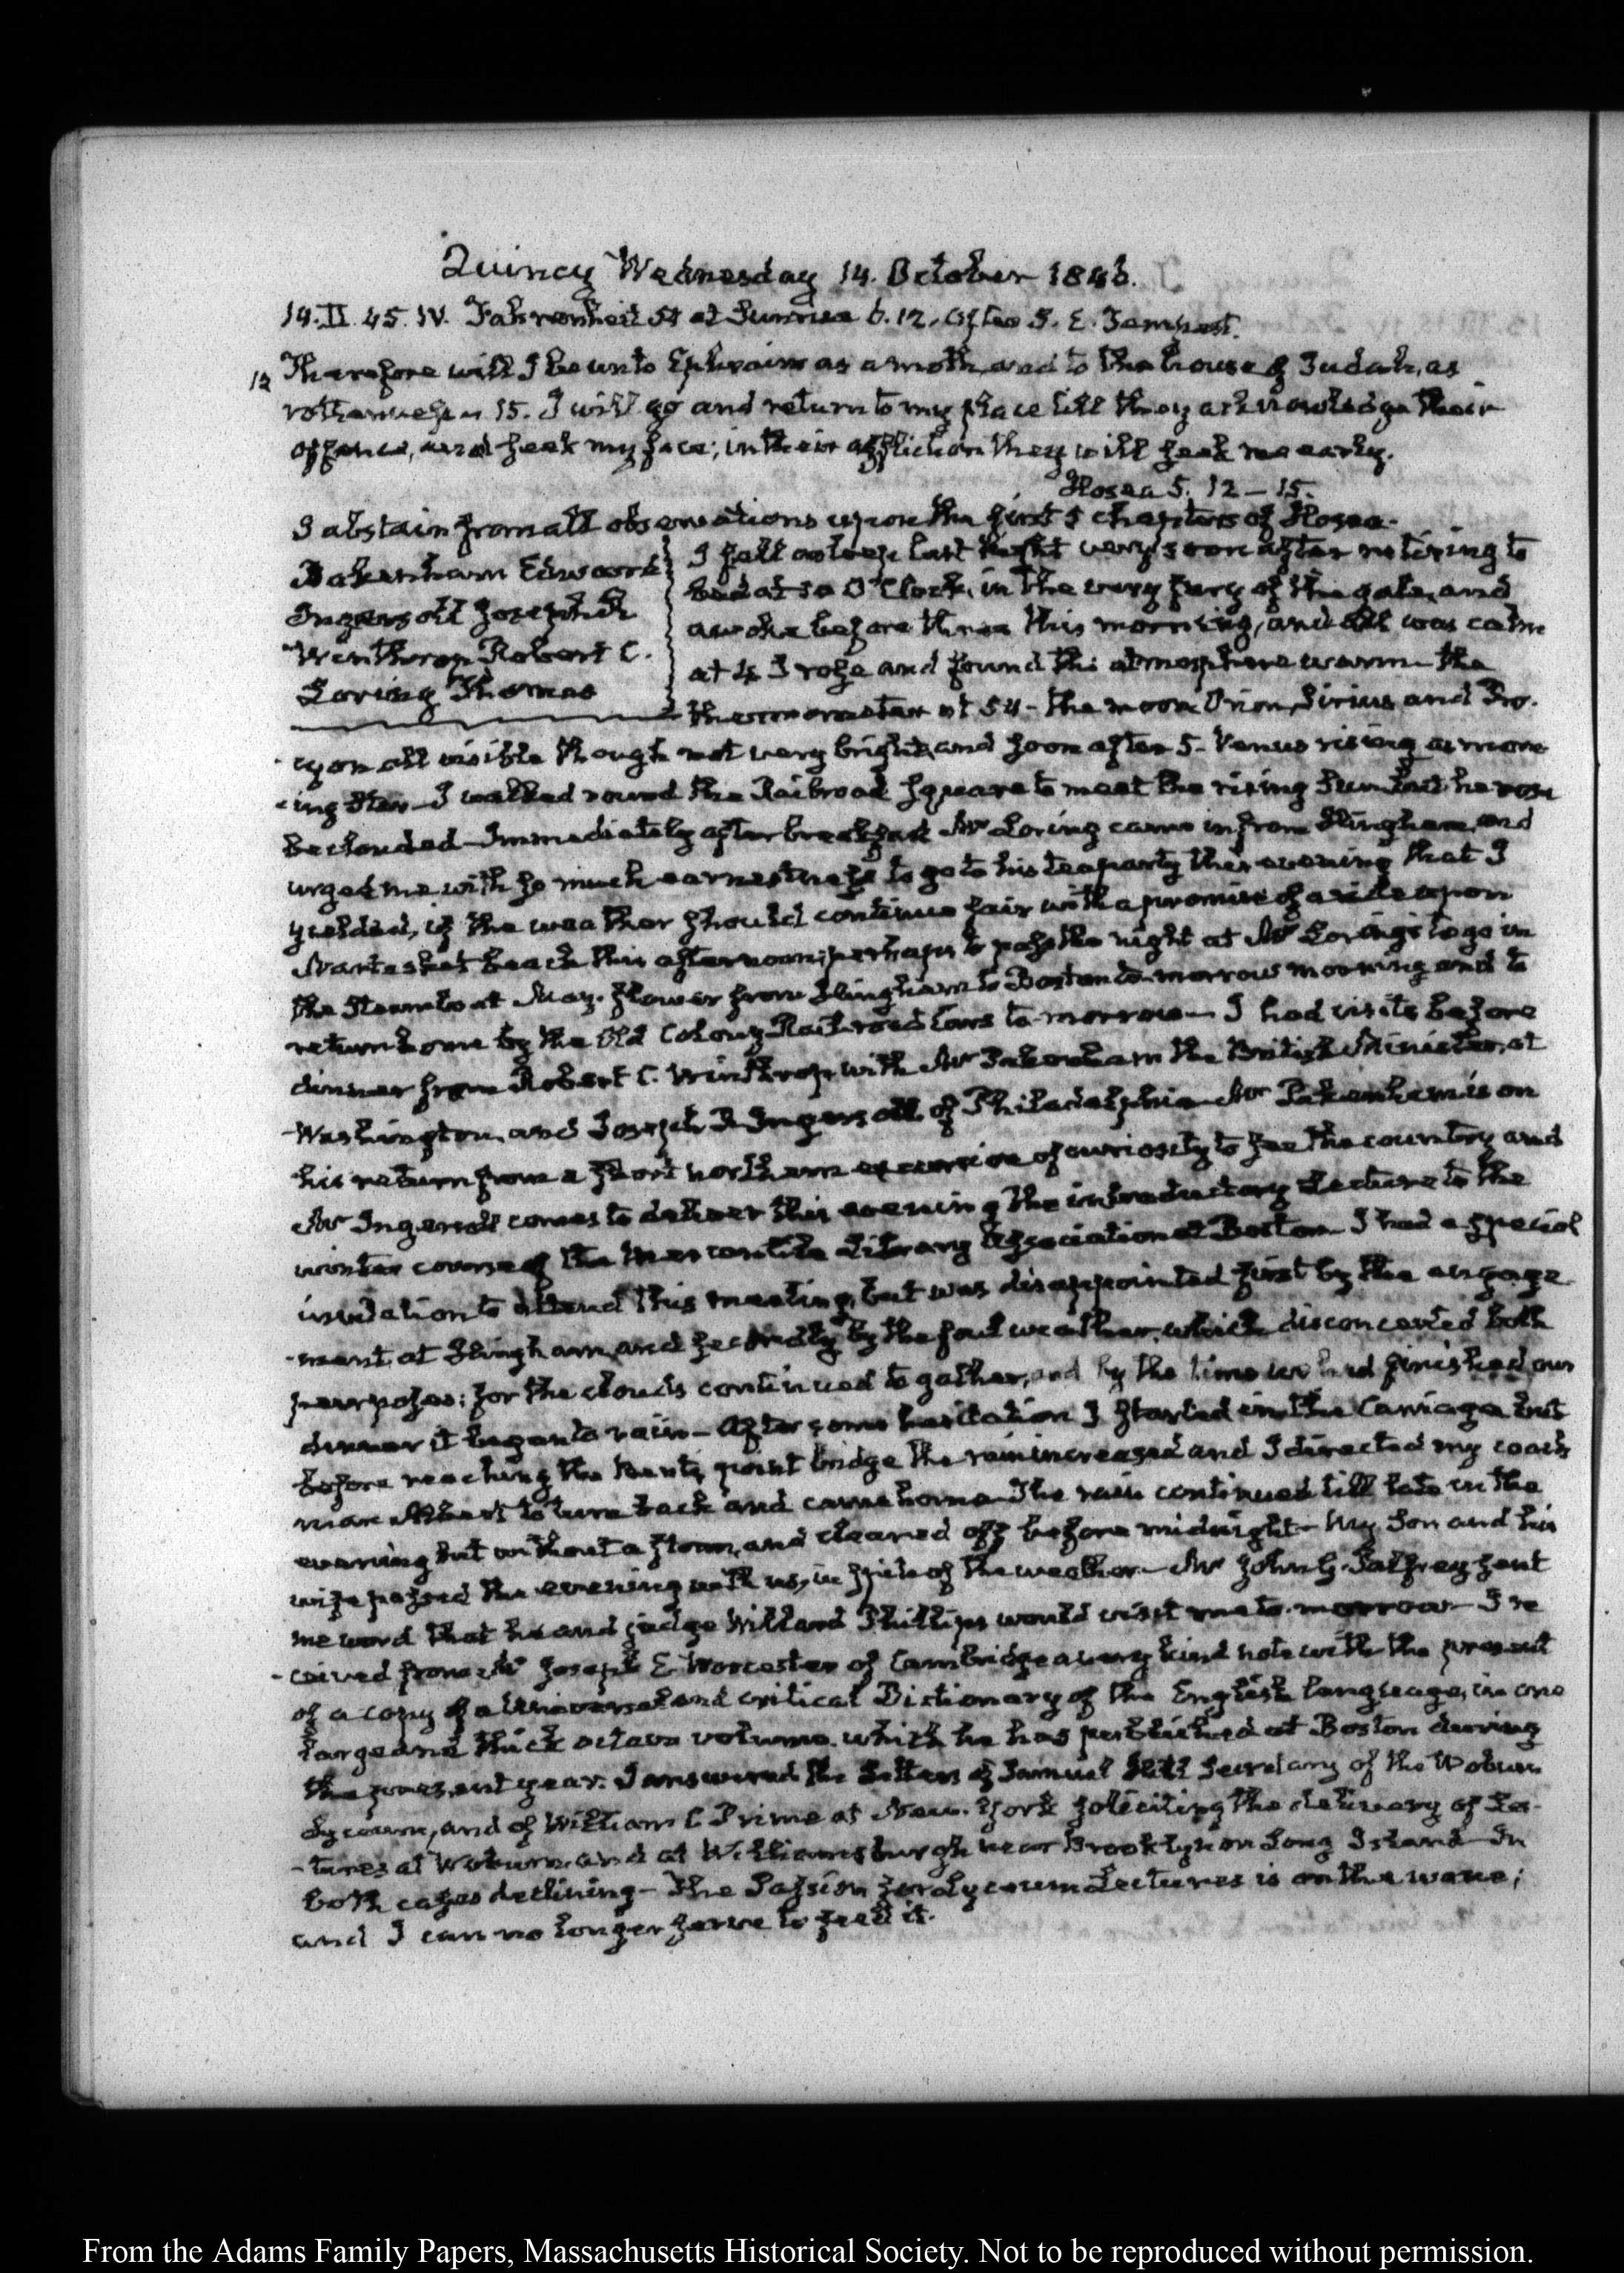 Quincy Wednesday 14. October 1846.
14. II. 45. IV. Fahrenheit 54 at Sunrise 6.12. after S. E. Tempest.
12 Therefore will I be unto Ephraim as a moth, and to the house of Judah, as
rottenness. 15. I will go and return to my place till they acknowledge their
offence, and seek my face; in their affliction they will seek me early.
Hosea 5. 12-15.
I abstain from all observations upon the first 5 chapters of Hosea.
Pakenham Edward
Ingersoll Joseph R
Winthrop Robert C.
Loring Thomas
I fell asleep last Night very soon after retiring to
bed at 10 O'Clock, in the very fury of the gale, and
awoke before three this morning, and all was calm
at 4 I rose and found the atmosphere warm the
thermometer at 54 - the moon Orion, Sirius and Pro-
-cyon all visible though not very bright, and soon after 5. Venus rising as morn-
-ing Star - I walked round the Railroad square to meet the rising Sun but he rose
beclouded - Immediately after breakfast Mr Loring came in from Hingham, and
urged me with so much earnestness to go to his tea party this evening that I
yielded, if the weather should continue fair with a promise of a ride upon
Nantasket beach this afternoon; perhaps to pass the night at Mr Loring's to go in
the Steamboat May-flower from Hingham to Boston to-morrow morning and to
return home by the Old Colony Rail-road Cars to-morrow - I had visits before
dinner from Robert C. Winthrop, with Mr Pakenham the British Minister, at
Washington, and Joseph R Ingersoll of Philadelphia - Mr Pakenham is on
his return from a short northern excursion of curiosity to see the country and
Mr Ingersoll comes to deliver this evening the introductory Lecture to the
winter course of the Mercantile Library Association at Boston - I had a special
invitation to attend this meeting, but was disappointed first by the engage-
-ment at Hingham, and secondly by the foul weather, which disconcerted both
purposes: for the clouds continued to gather, and by the time we had finished our
dinner it began to rain - After some hesitation I started in the Carriage but
before reaching the point bridge the rain increased and I directed my coach
man Albert to turn back and came home - The rain continued till late in the
evening but without a storm, and cleared off before midnight - My Son and his
wife passed the evening with us, in spite of the weather - Mr John G. Palfrey sent
me word that he and judge Willard Phillips would visit me to-morrow - I re
-ceived from Mr Joseph E Worcester of Cambridge a very kind note with the present
of a copy of a Universal and critical Dictionary of the English language, in one
large and thick octavo volume, which he has published at Boston during
the present year. I answered the Letters of Samuel Secretary of the Woburn
Lyceum, and of William C Prime at New-York soliciting the delivery of Lec-
-tures at Woburn and at Williamsburgh near Brooklyn on Long Island - In
both cases declining - The Passion for Lyceum Lectures is on the wane;
and I can no longer serve to feed it.
From the Adams Family Papers, Massachusetts Historical Society. Not to be reproduced without permission.